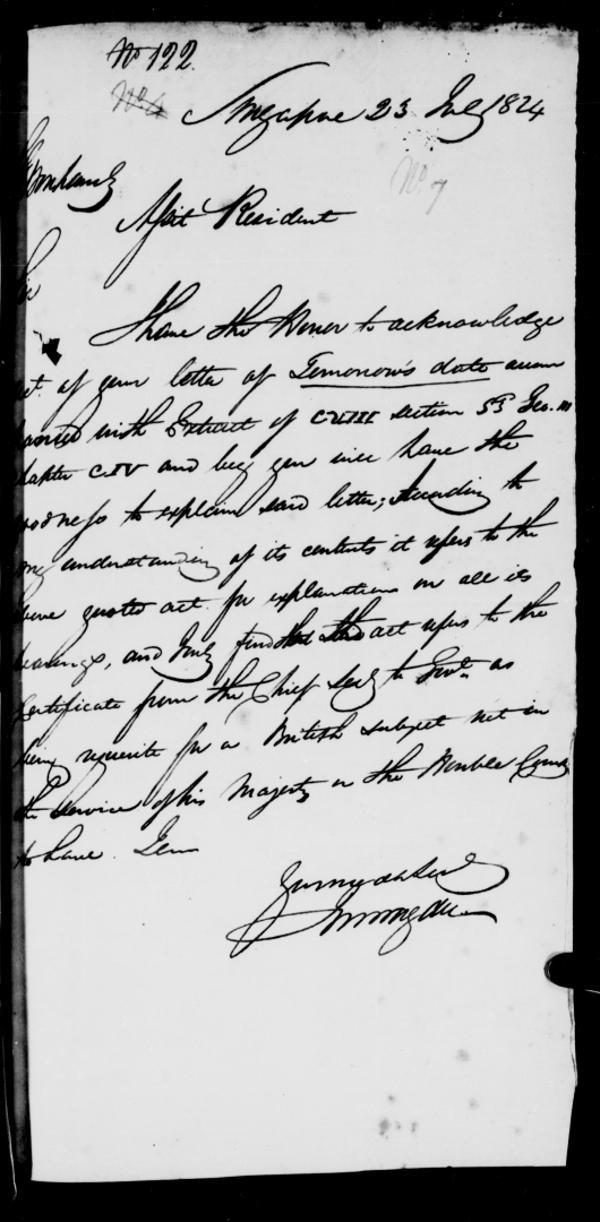 No 122.
No 4
Singapore 23 July 1824
No 7
Bonham Esq
Asst Resident
Sir
I have the Honor to acknowledge
rect. of your letter of Tomorrow's date accom
panied with Extract of CVIII section 53d Geo. III
chapter CLV and beg you will have the
goodness to explain said letter; According to
my understanding of its contents it refers to the
above quoted act for explanation on all its
bearings, and I only find that the act refers to the
Certificate from the Chief Secy to Govt. as
being requisite for a British subject not in
the service of his Majesty or the Honble Compy
to have